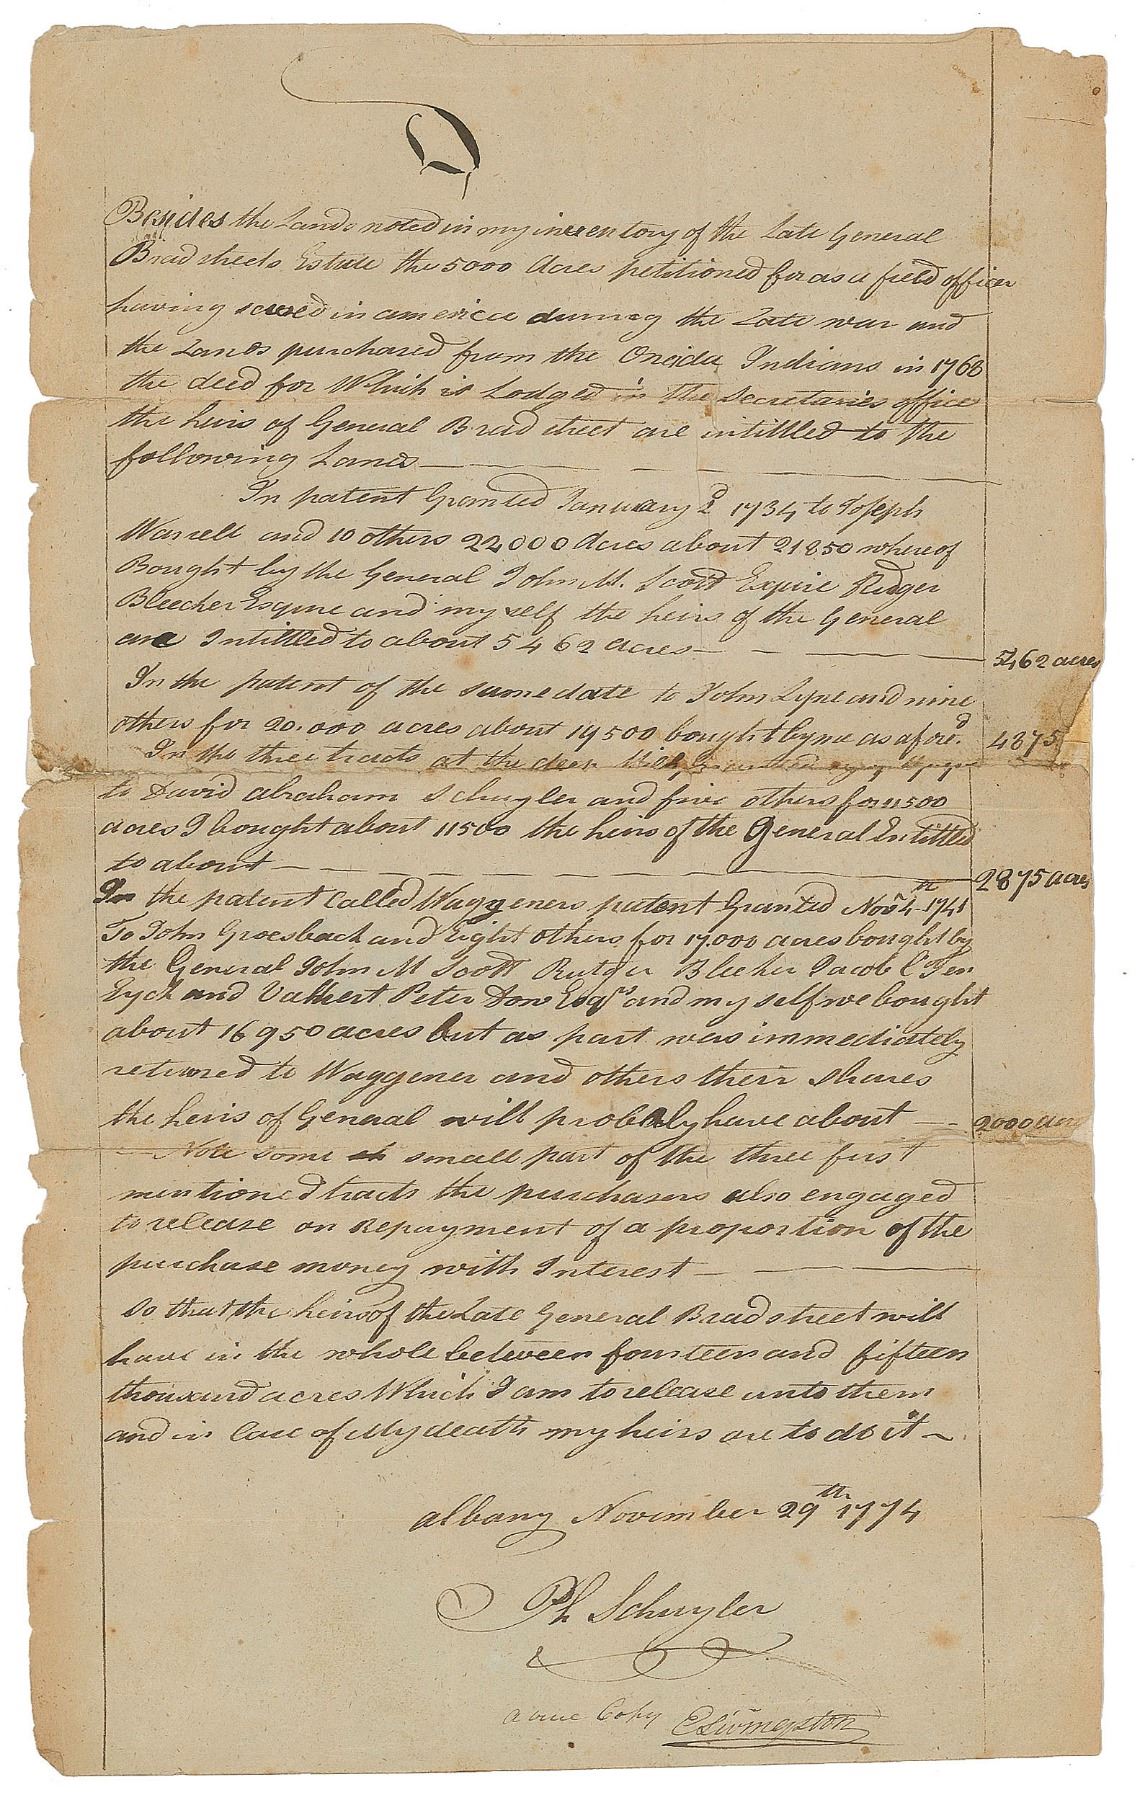 D
Besides the Lands noted in my inventory of the Late General
Bradstreets Estate the 5000 Acres petitioned for as a field officer
having served in america during the Late war and
the Lands purchased from the Oneida Indians in 1768
the deed for Which is Lodged in the Secretaries office
the heirs of General Bradstreet are intittled to the
following Lands
In patent Granted January 2d 1734 to Joseph
Worrell and 10 others 22000 Acres about 21850 whereof
Bought by the General John M. Scott Esquire Rutger
Bleecker Esquire and my self the heirs of the General
are Intittled to about 5462 acres 5462 acres
In the patent of the same date to John Lyne and nine
others for 20.000 acres about 19500 bought by me as afored 4875
In the three tracts at the deer
to David abraham Schuyler and five others for 11500
acres I bought about 11500 the heirs of the General Entittled
to about 2875 acres
In the patent Called Waggeners patent Granted Novr 4th 1741
To John Groesback and Eight others for 17.000 acres bought by
the General John M Scott Rutger Bleecker Jacob C Ten
Eyck and Valkert Peter Dow Esqrs and my self we bought
about 16950 acres but as part was immediately
returned to Waggener and others their shares
the heirs of General will probably have about 2000 acres
Note some small part of the three first
mentioned tracts the purchasers also engaged
to release on Repayment of a proportion of the
purchase money with Interest
So that the heirs of the Late General Bradstreet will
have in the whole between fourteen and fifteen
thousand acres Which I am to release unto them
and in Case of My death my heirs are to do it
albany November 29th 1774
Ph Schuyler
a true Copy E Livingston